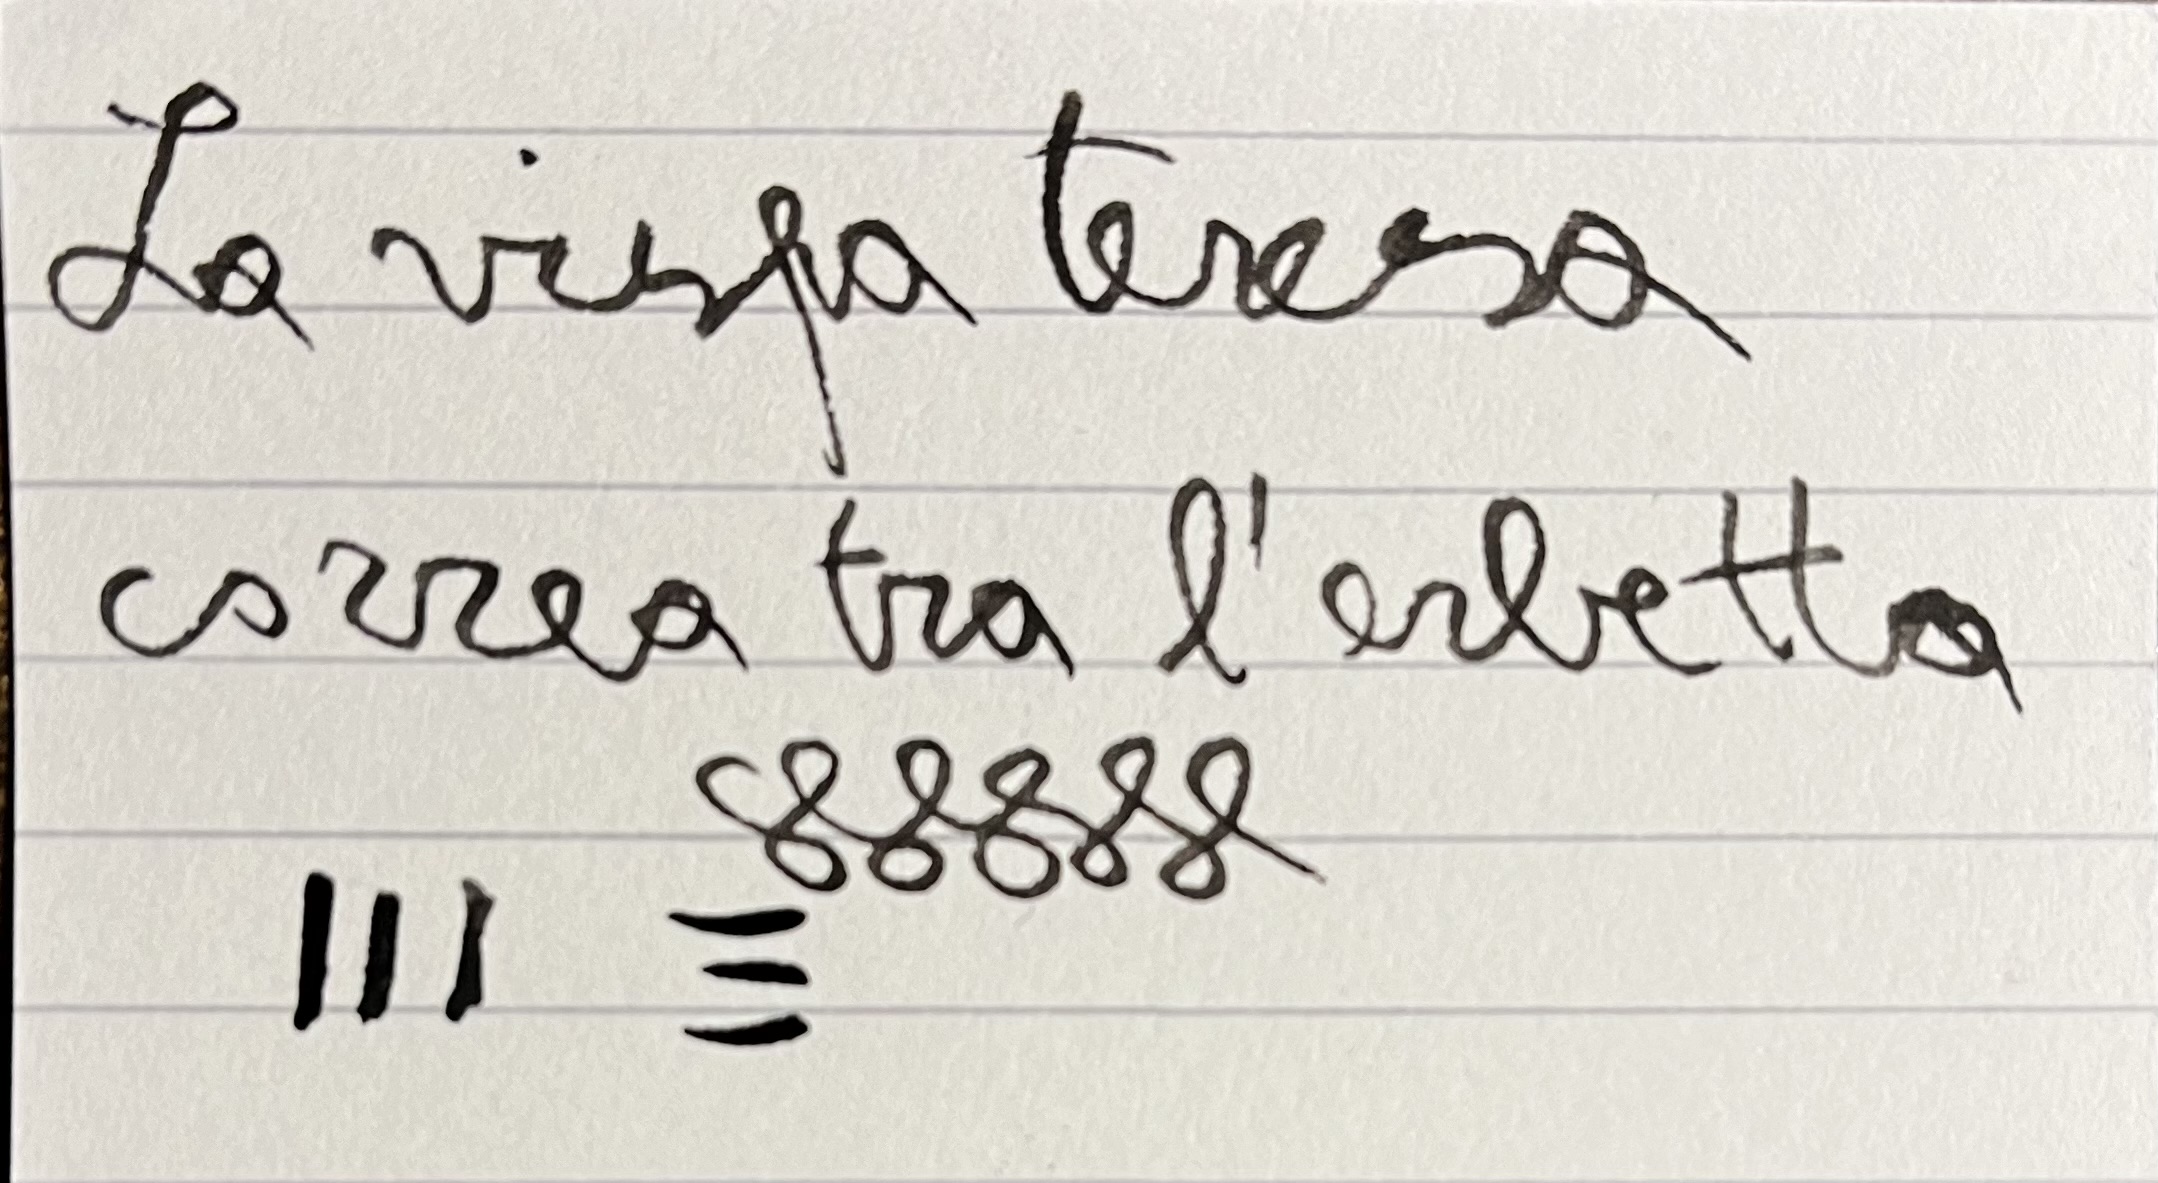 La vispa teresa
correa tra l'erbetta
88888
III ☰